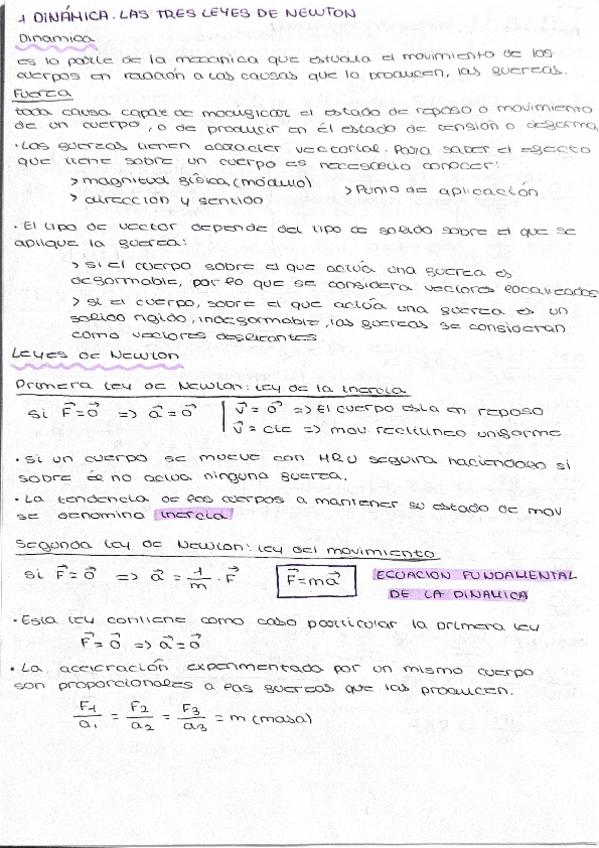 1 DINÁMICA. LAS TRES LEYES DE NEWTON
Dinamica
es la parte de la mecanica que estudia el movimiento de los
cuerpos en relación a las causas que lo producen, las fuerzas.
Fuerza
toda causa capaz de modificar el estado de reposo o movimiento
de un cuerpo, o de producir en él estado de tensión o deforma
· Las fuerzas tienen caracter vectorial. Para saber el efecto
que tiene sobre un cuerpo es necesario conocer:
> magnitud física (módulo) > Punto de aplicación
> dirección y sentido
· El tipo de vector depende del tipo de solido sobre el que se
aplique la fuerza:
> si el cuerpo sobre el que actúa una fuerza es
deformable, por lo que se considera vectores localizados
> si el cuerpo, sobre el que actúa una fuerza es un
solido rigido, indeformable, las fuerzas se consideran
como vectores deslizantes
Leyes de Newton
Primera ley de Newton: ley de la inercia
si F⃗=0⃗ => a⃗=0⃗ | v⃗=0⃗ => El cuerpo esta en reposo
v⃗=cte => mov. rectilineo uniforme
· si un cuerpo se mueve con MRU seguira haciendolo si
sobre él no actua ninguna fuerza.
· La tendencia de los cuerpos a mantener su estado de mov
se denomina inercia
Segunda ley de Newton: ley del movimiento
si F⃗=0⃗ => a⃗ = 1/m · F⃗ F⃗=ma⃗ ECUACION FUNDAMENTAL
DE LA DINAMICA
· Esta ley contiene como caso particular la primera ley
F⃗=0⃗ => a⃗=0⃗
· La acceración experimentada por un mismo cuerpo
son proporcionales a las fuerzas que las producen.
F1/a1 = F2/a2 = F3/a3 = m (masa)